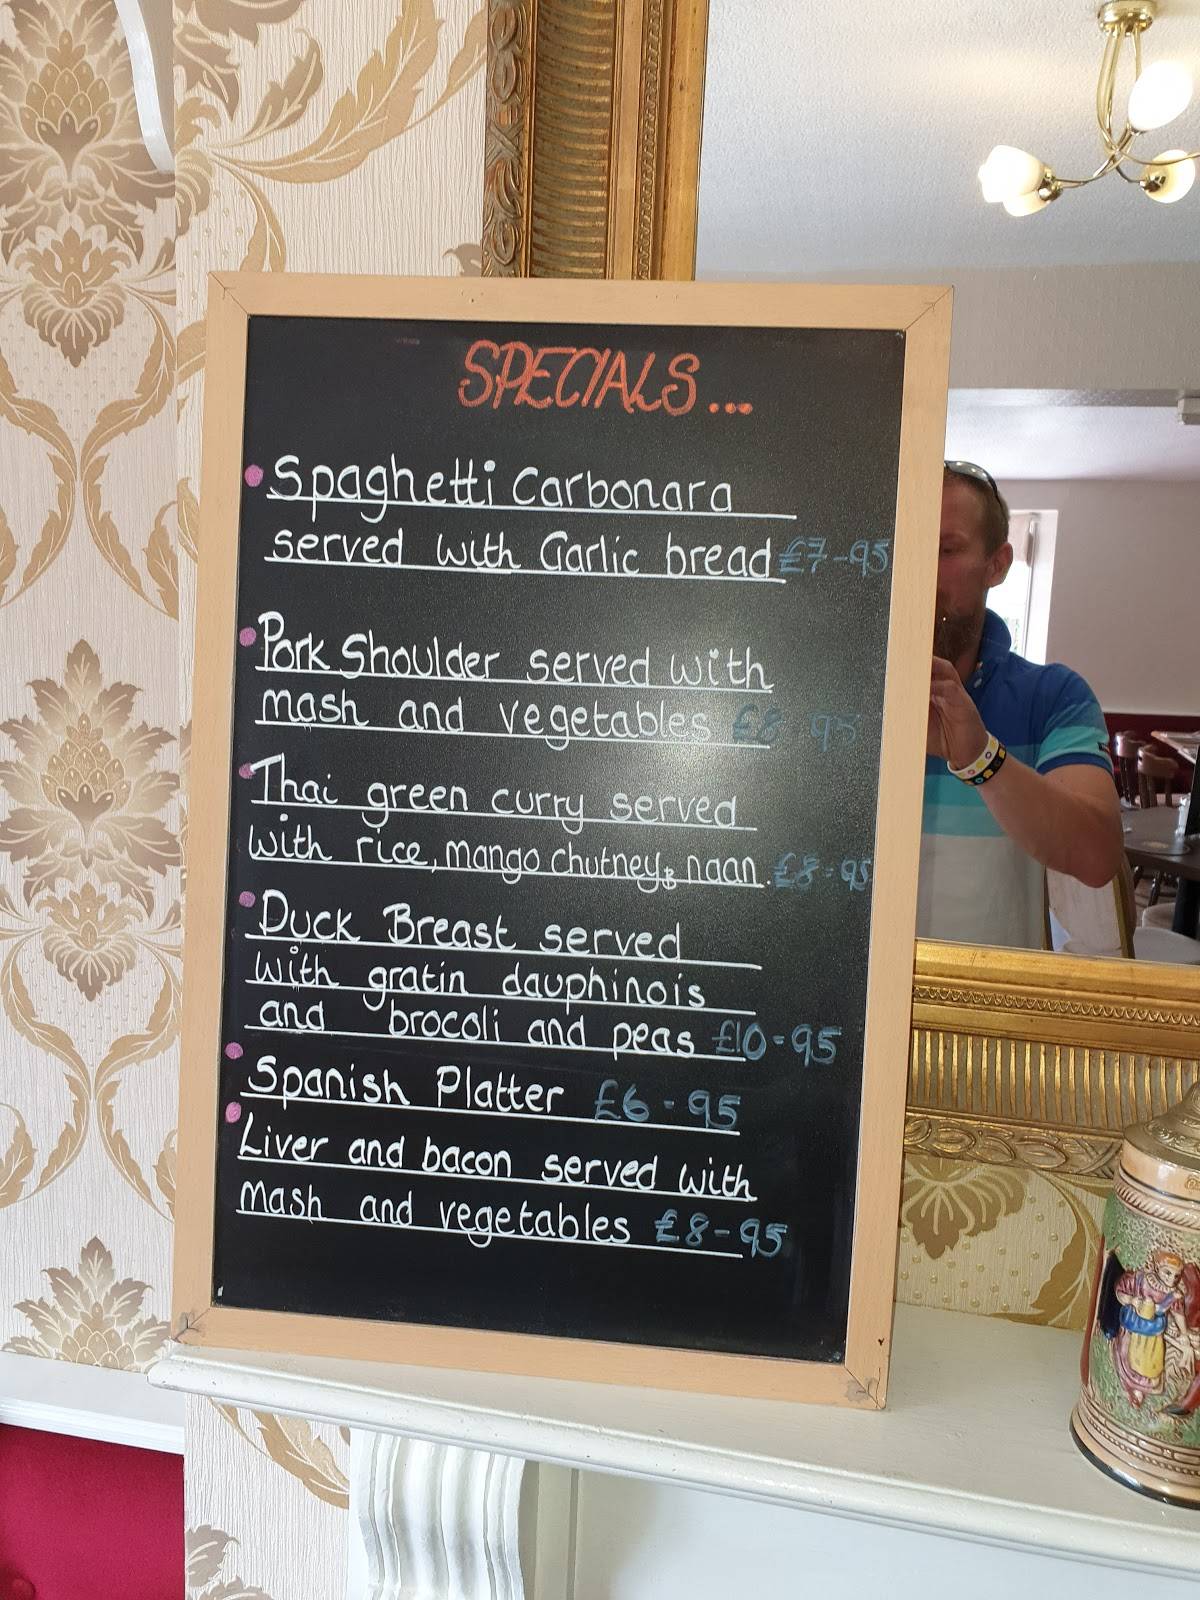 SPECIALS...
Spaghetti Carbonara
served with Garlic bread £7-95
Pork Shoulder served with
mash and vegetables £8 95
Thai green curry served
with rice, mango chutney & naan. £8-95
Duck Breast served
with gratin dauphinois
and brocoli and peas £10-95
Spanish Platter £6-95
Liver and bacon served with
mash and vegetables £8-95